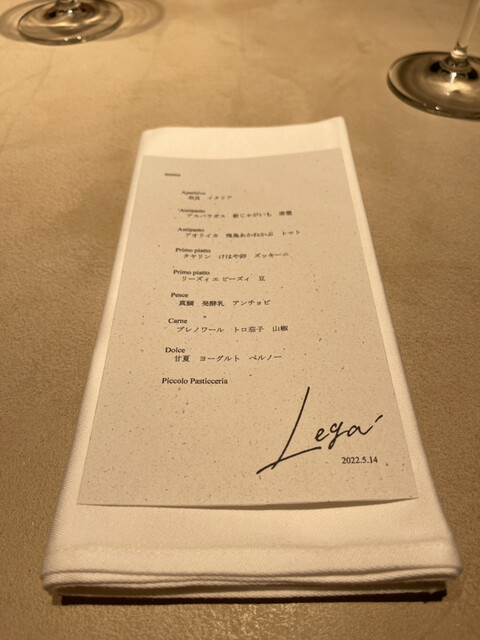 menu
Aperitivo
奈良 イタリア
Antipasto
アスパラガス 新じゃがいも 薄墨
Antipasto
アオリイカ 飛鳥あかねかぶ トマト
Primo piatto
タヤリン けはや卵 ズッキーニ
Primo piatto
リーズィ エ ビーズィ 豆
Pesce
真鯛 発酵乳 アンチョビ
Carne
プレノワール トロ茄子 山椒
Dolce
甘夏 ヨーグルト ペルノー
Piccolo Pasticceria
Lega'
2022.5.14